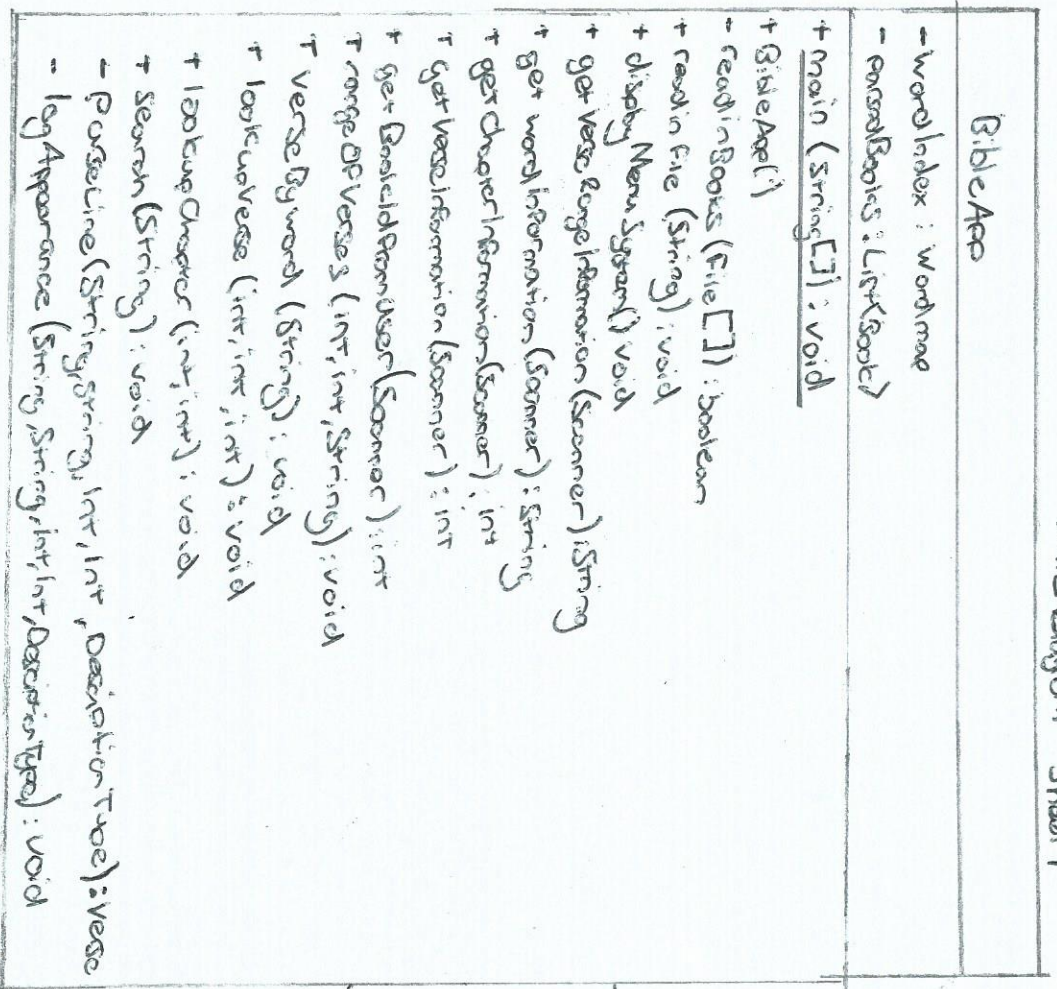 BibleApp
- wordIndex : wordmap
- parsedBooks : List<Book>
+ main (String[]) : void
+ BibleApp()
- readinBooks (File[]) : boolean
+ readinFile (String) : void
+ displayMenuSystem() void
+ getVerseRangeInformation (Scanner) : String
+ getwordinformation (Scanner) : String
+ getChapterInformation (Scanner) : int
+ getVerseinformation (Scanner) : int
+ getBookIdFromUser (Scanner) : int
+ rangeOfVerses (int, int, String) : void
+ verseByword (String) : void
+ lookupVerse (int, int, int) : void
+ lookupChapter (int, int) : void
+ search (String) : void
- ParseLine (String, String, Int, Int, DescriptionType) : Verse
- logAppearance (String, String, Int, Int, DescriptionType) : void